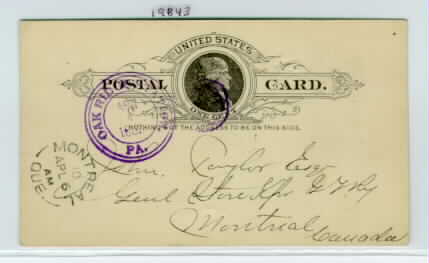 19843
UNITED STATES
POSTAL CARD.
ONE CENT
NOTHING BUT THE ADDRESS TO BE ON THIS SIDE.
OAK
PA.
MONTREAL
10
AM
AP 6
QUE
Wm. Taylor Esq
Genl Store Kpr G T Ry
Montreal
Canada